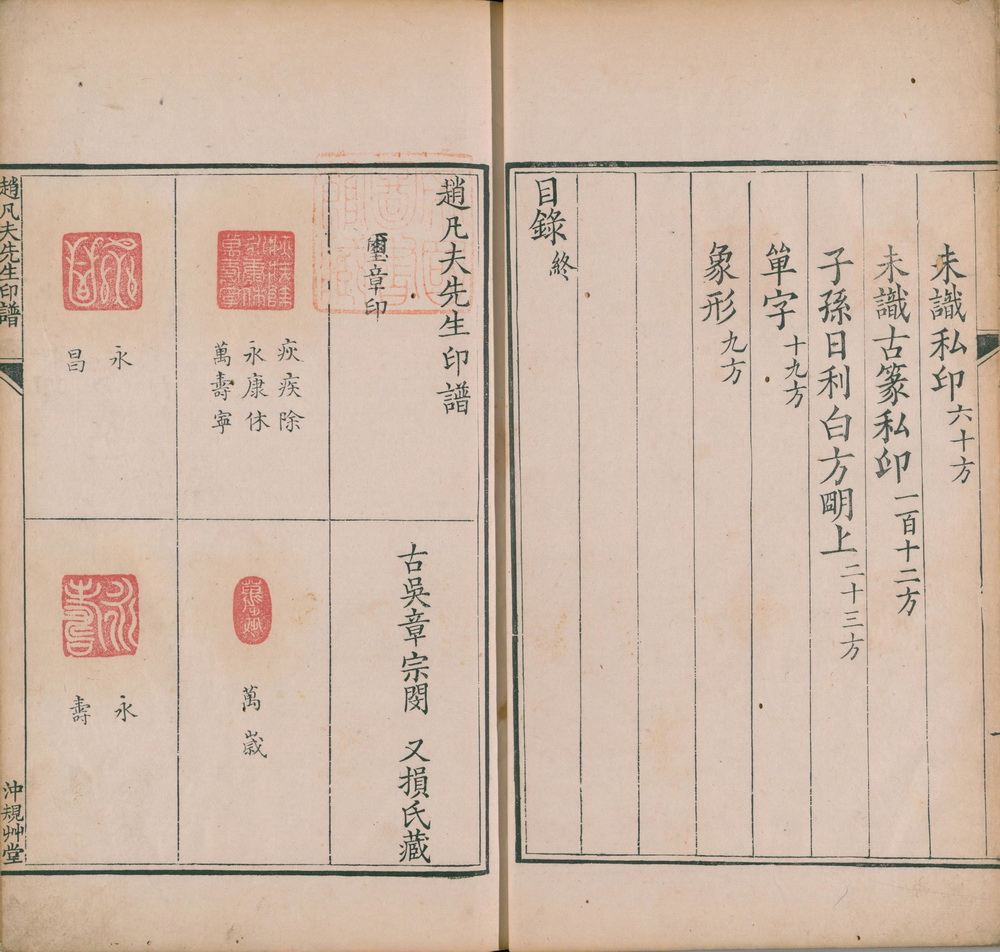 未識私印六十方
未識古篆私印一百十二方
子孫日利白方朙上二十三方
單字十九方
象形九方
目錄終
趙凡夫先生印譜
璽章印
古吳章宗閔 又損氏藏
疢疾除
永康休
萬壽寧
萬歲
永
昌
永
壽
趙凡夫先生印譜
沖規艸堂